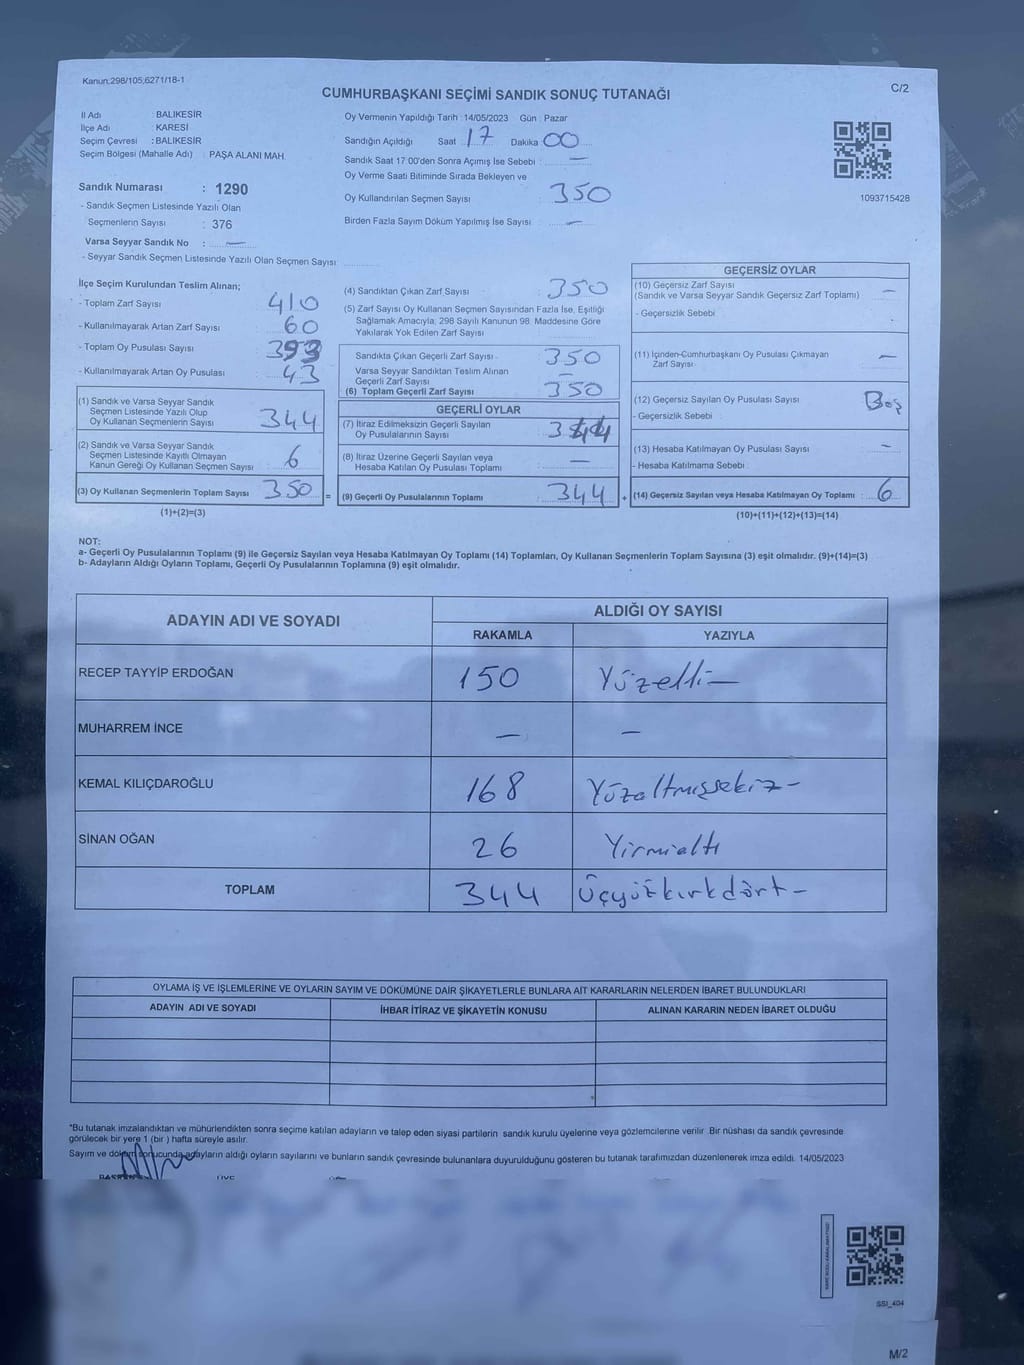 Kanun:298/105;6271/18-1
C/2
CUMHURBAŞKANI SEÇİMİ SANDIK SONUÇ TUTANAĞI
İl Adı : BALIKESİR
İlçe Adı : KARESİ
Seçim Çevresi : BALIKESİR
Seçim Bölgesi (Mahalle Adı) : PAŞA ALANI MAH.
Sandık Numarası : 1290
- Sandık Seçmen Listesinde Yazılı Olan
Seçmenlerin Sayısı : 376
Varsa Seyyar Sandık No : —
- Seyyar Sandık Seçmen Listesinde Yazılı Olan Seçmen Sayısı :
Oy Vermenin Yapıldığı Tarih : 14/05/2023 Gün : Pazar
Sandığın Açıldığı Saat 17 Dakika 00
Sandık Saat 17:00'den Sonra Açımış İse Sebebi : —
Oy Verme Saati Bitiminde Sırada Bekleyen ve
Oy Kullandırılan Seçmen Sayısı : 350
Birden Fazla Sayım Döküm Yapılmış İse Sayısı : —
1093715428
İlçe Seçim Kurulundan Teslim Alınan;
- Toplam Zarf Sayısı : 410
- Kullanılmayarak Artan Zarf Sayısı : 60
- Toplam Oy Pusulası Sayısı : 393
- Kullanılmayarak Artan Oy Pusulası : 43
(1) Sandık ve Varsa Seyyar Sandık
Seçmen Listesinde Yazılı Olup
Oy Kullanan Seçmenlerin Sayısı : 344
(2) Sandık ve Varsa Seyyar Sandık
Seçmen Listesinde Kayıtlı Olmayan
Kanun Gereği Oy Kullanan Seçmen Sayısı : 6
(3) Oy Kullanan Seçmenlerin Toplam Sayısı : 350 =
(1)+(2)=(3)
(4) Sandıktan Çıkan Zarf Sayısı : 350
(5) Zarf Sayısı Oy Kullanan Seçmen Sayısından Fazla İse, Eşitliği
Sağlamak Amacıyla, 298 Sayılı Kanunun 98. Maddesine Göre
Yakılarak Yok Edilen Zarf Sayısı :
Sandıkta Çıkan Geçerli Zarf Sayısı : 350
Varsa Seyyar Sandıktan Teslim Alınan
Geçerli Zarf Sayısı : —
(6) Toplam Geçerli Zarf Sayısı : 350
GEÇERLİ OYLAR
(7) İtiraz Edilmeksizin Geçerli Sayılan
Oy Pusulalarının Sayısı : 344
(8) İtiraz Üzerine Geçerli Sayılan veya
Hesaba Katılan Oy Pusulası Toplamı : —
(9) Geçerli Oy Pusulalarının Toplamı : 344 +
GEÇERSİZ OYLAR
(10) Geçersiz Zarf Sayısı : —
(Sandık ve Varsa Seyyar Sandık Geçersiz Zarf Toplamı)
- Geçersizlik Sebebi :
(11) İçinden Cumhurbaşkanı Oy Pusulası Çıkmayan
Zarf Sayısı : —
(12) Geçersiz Sayılan Oy Pusulası Sayısı : Boş
- Geçersizlik Sebebi :
(13) Hesaba Katılmayan Oy Pusulası Sayısı : —
- Hesaba Katılmama Sebebi :
(14) Geçersiz Sayılan veya Hesaba Katılmayan Oy Toplamı : 6
(10)+(11)+(12)+(13)=(14)
NOT:
a- Geçerli Oy Pusulalarının Toplamı (9) ile Geçersiz Sayılan veya Hesaba Katılmayan Oy Toplamı (14) Toplamları, Oy Kullanan Seçmenlerin Toplam Sayısına (3) eşit olmalıdır. (9)+(14)=(3)
b- Adayların Aldığı Oyların Toplamı, Geçerli Oy Pusulalarının Toplamına (9) eşit olmalıdır.
ADAYIN ADI VE SOYADI
ALDIĞI OY SAYISI
RAKAMLA YAZIYLA
RECEP TAYYİP ERDOĞAN 150 Yüzelli—
MUHARREM İNCE — —
KEMAL KILIÇDAROĞLU 168 Yüzaltmışsekiz-
SİNAN OĞAN 26 Yirmialtı
TOPLAM 344 Üçyüzkırkdört-
OYLAMA İŞ VE İŞLEMLERİNE VE OYLARIN SAYIM VE DÖKÜMÜNE DAİR ŞİKAYETLERLE BUNLARA AİT KARARLARIN NELERDEN İBARET BULUNDUKLARI
ADAYIN ADI VE SOYADI İHBAR İTİRAZ VE ŞİKAYETİN KONUSU ALINAN KARARIN NEDEN İBARET OLDUĞU
*Bu tutanak imzalandıktan ve mühürlendikten sonra seçime katılan adayların ve talep eden siyasi partilerin sandık kurulu üyelerine veya gözlemcilerine verilir. Bir nüshası da sandık çevresinde
görülecek bir yere 1 (bir ) hafta süreyle asılır.
Sayım ve döküm sonucunda adayların aldığı oyların sayılarını ve bunların sandık çevresinde bulunanlara duyurulduğunu gösteren bu tutanak tarafımızdan düzenlenerek imza edildi. 14/05/2023
BAŞKAN ÜYE
SSI_404
M/2